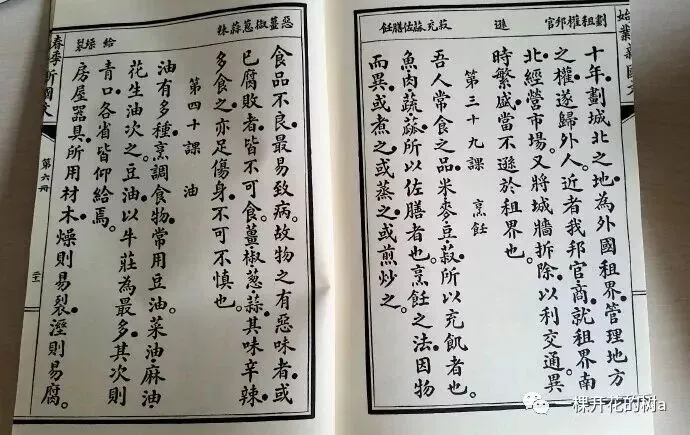 劃租權邦官
遜
菽充蔬佐膳飪
十年。劃城北之地。為外國租界。管理地方
之權。遂歸外人。近者我邦官商。就租界南
北。經營市場。又將城牆拆除。以利交通。異
時繁盛。當不遜於租界也。
第三十九課　烹飪
吾人常食之品。米麥豆菽。所以充飢者也。
魚肉蔬菰。所以佐膳者也。烹飪之法。因物
而異。或煮之。或蒸之。或煎炒之。
惡薑椒蔥蒜辣
給燥裂
食品不良。最易致病。故物之有惡味者。或
已腐敗者。皆不可食。薑椒蔥蒜。其味辛辣。
多食之。亦足傷身。不可不慎也。
第四十課　油
油有多種。烹調食物。常用豆油。菜油。麻油。
花生油次之。豆油以牛莊為最多。其次則
青口。各省皆仰給焉。
房屋器具。所用材木。燥則易裂。溼則易腐。
新國文
第六冊
一棵开花的树a